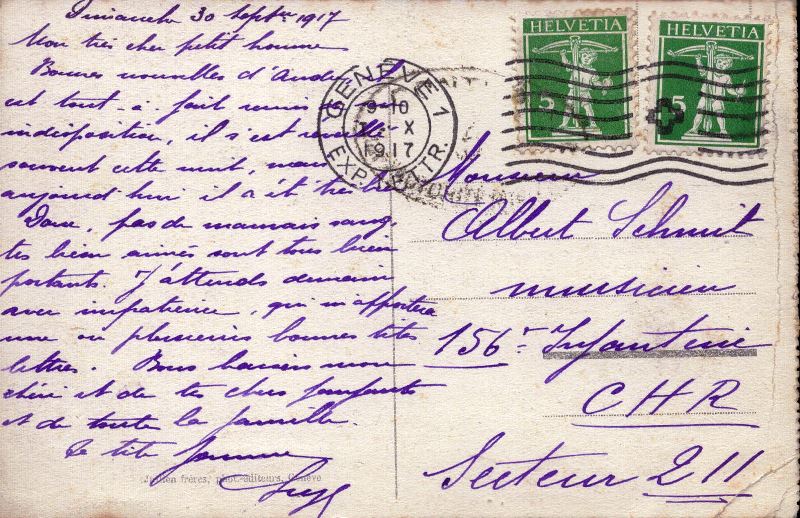 Dimanche 30 Septbre 1917
Mon très cher petit homme
Bonnes nouvelles d'André, il
est tout-à-fait remis son
indisposition, il s'est réveillé
souvent cette nuit, mais
aujourd'hui il a été très
Donc, pas de mauvais sang,
tes bien aimés sont tous bien
portants. J'attends demain
avec impatience, qui m'apportera
une ou plusieurs bonnes tites
lettres. Bons baisers mon
chéri et de tes chers fanfants
et de toute la famille.
Ta tite femme
Jullien frères, phot.-éditeurs, Genève
GENÈVE 1
9-10
2 X
1917
EXP. LETTR.
HELVETIA
5
HELVETIA
5
Monsieur
Albert Schmit
musicien
156r Infanterie
CHR
Secteur 211